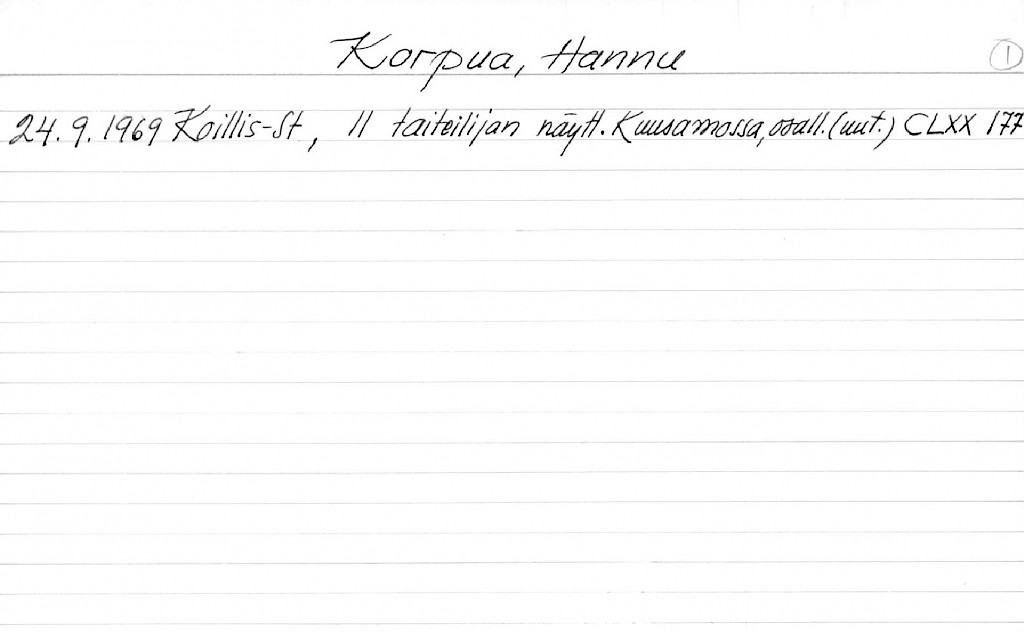 Korpua, Hannu
1
24.9.1969 Koillis-St, 11 taiteilijan näytt. Kuusamossa, osall. (uut.) CLXX 177